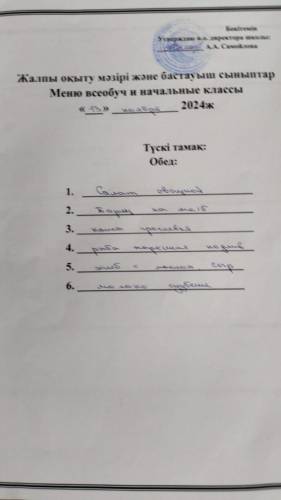 Бекітемін
Утверждаю и.о. директора школы:
А.А. Самойлова
Жалпы оқыту мәзірі және бастауыш сыныптар
Меню всеобуч и начальные классы
«13» ноября 2024ж
Түскі тамақ:
Обед:
1. Салат овощной
2. Борщ на м/б
3. каша гречневая
4. рыба
5. хлеб с маслом, сыр
6. молоко